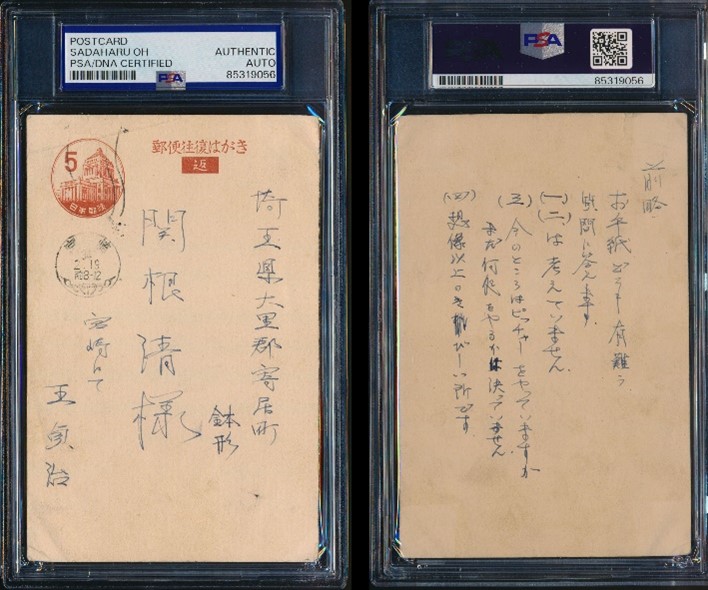 POSTCARD
SADAHARU OH
PSA/DNA CERTIFIED
AUTHENTIC
AUTO
85319056
PSA
郵便往復はがき
返
5
日本郵便
19
后8-12
埼玉県大里郡寄居町
鉢形
関根清様
宮崎にて
王貞治
PSA
85319056
前略
お手紙どうも有難う
質問に答えます。
(一)(二)は考えていません
(三)今のところはピッチャーをやっていますが
まだ何処をやるかは決っていません
(四)想像以上のきびしい所です